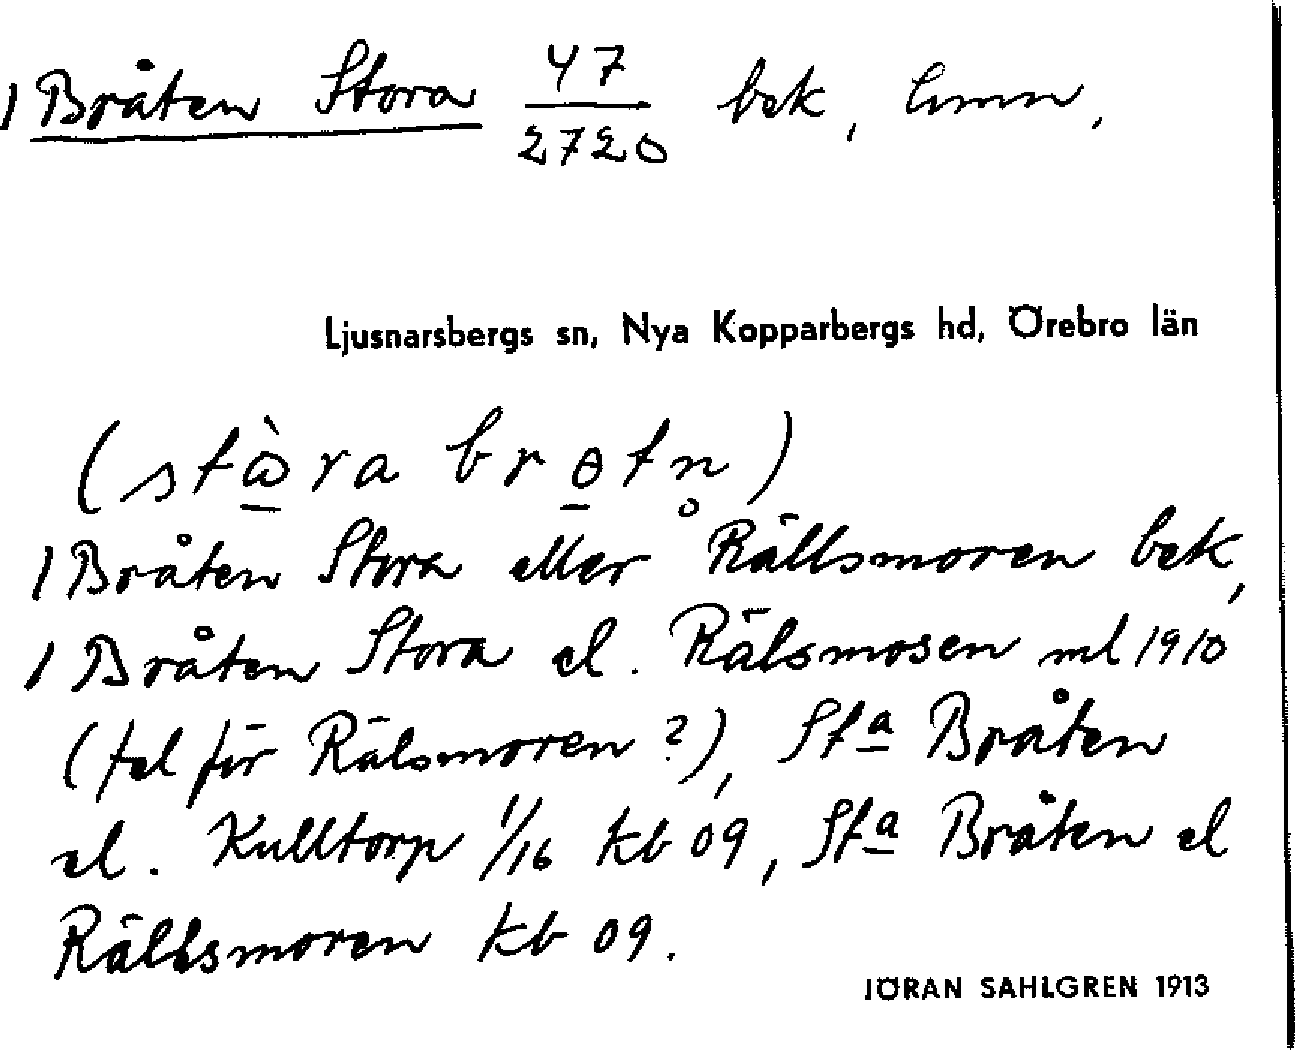 1 Bråten Stora 47/2720 bek, hmn,
Ljusnarsbergs sn, Nya Kopparbergs hd, Örebro län
(stɷ̱̀ra brɵ̱tn̥)
1 Bråten Stora eller Rällsmoren bek,
1 Bråten Stora el. Rälsmosen ml 1910
(fel för Rälsmoren?), Sta Bråten
el. Kulltorp 1/16 kb 09, Sta Bråten el
Rällsmoren kb 09.
JÖRAN SAHLGREN 1913